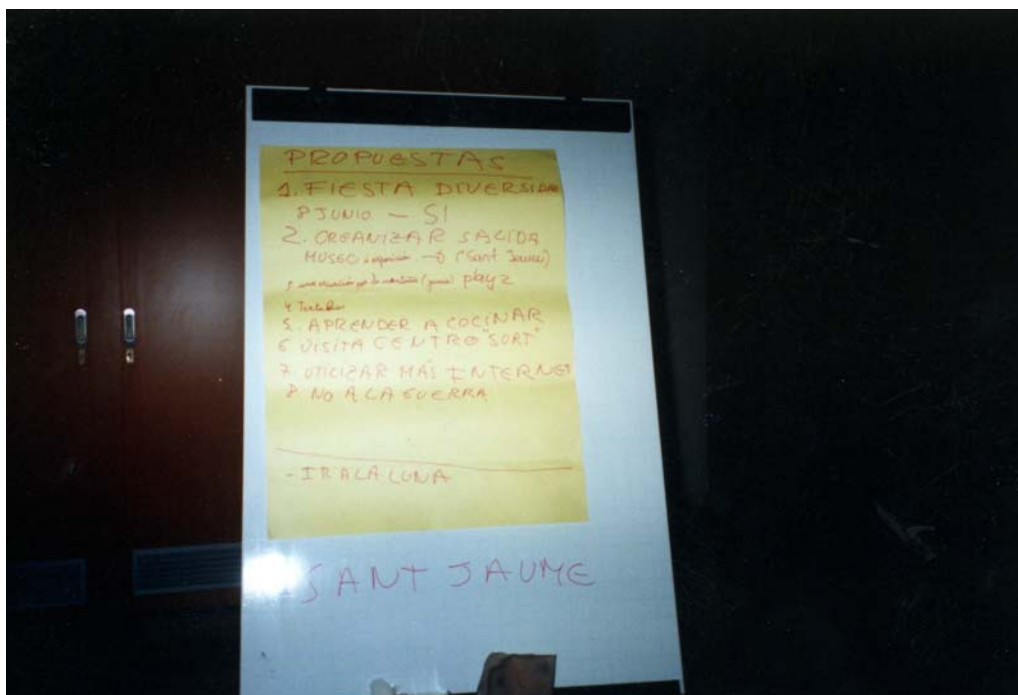 PROPUESTAS
1. FIESTA DIVERSIDAD
8 JUNIO - SI
2. ORGANIZAR SALIDA
MUSEO → (Sant Jaume)
play 2
4
5. APRENDER A COCINAR
6 VISITA CENTRO "SURT"
7 UTILIZAR MÁS INTERNET
8 NO A LA GUERRA
- IR A LA LUNA
SANT JAUME